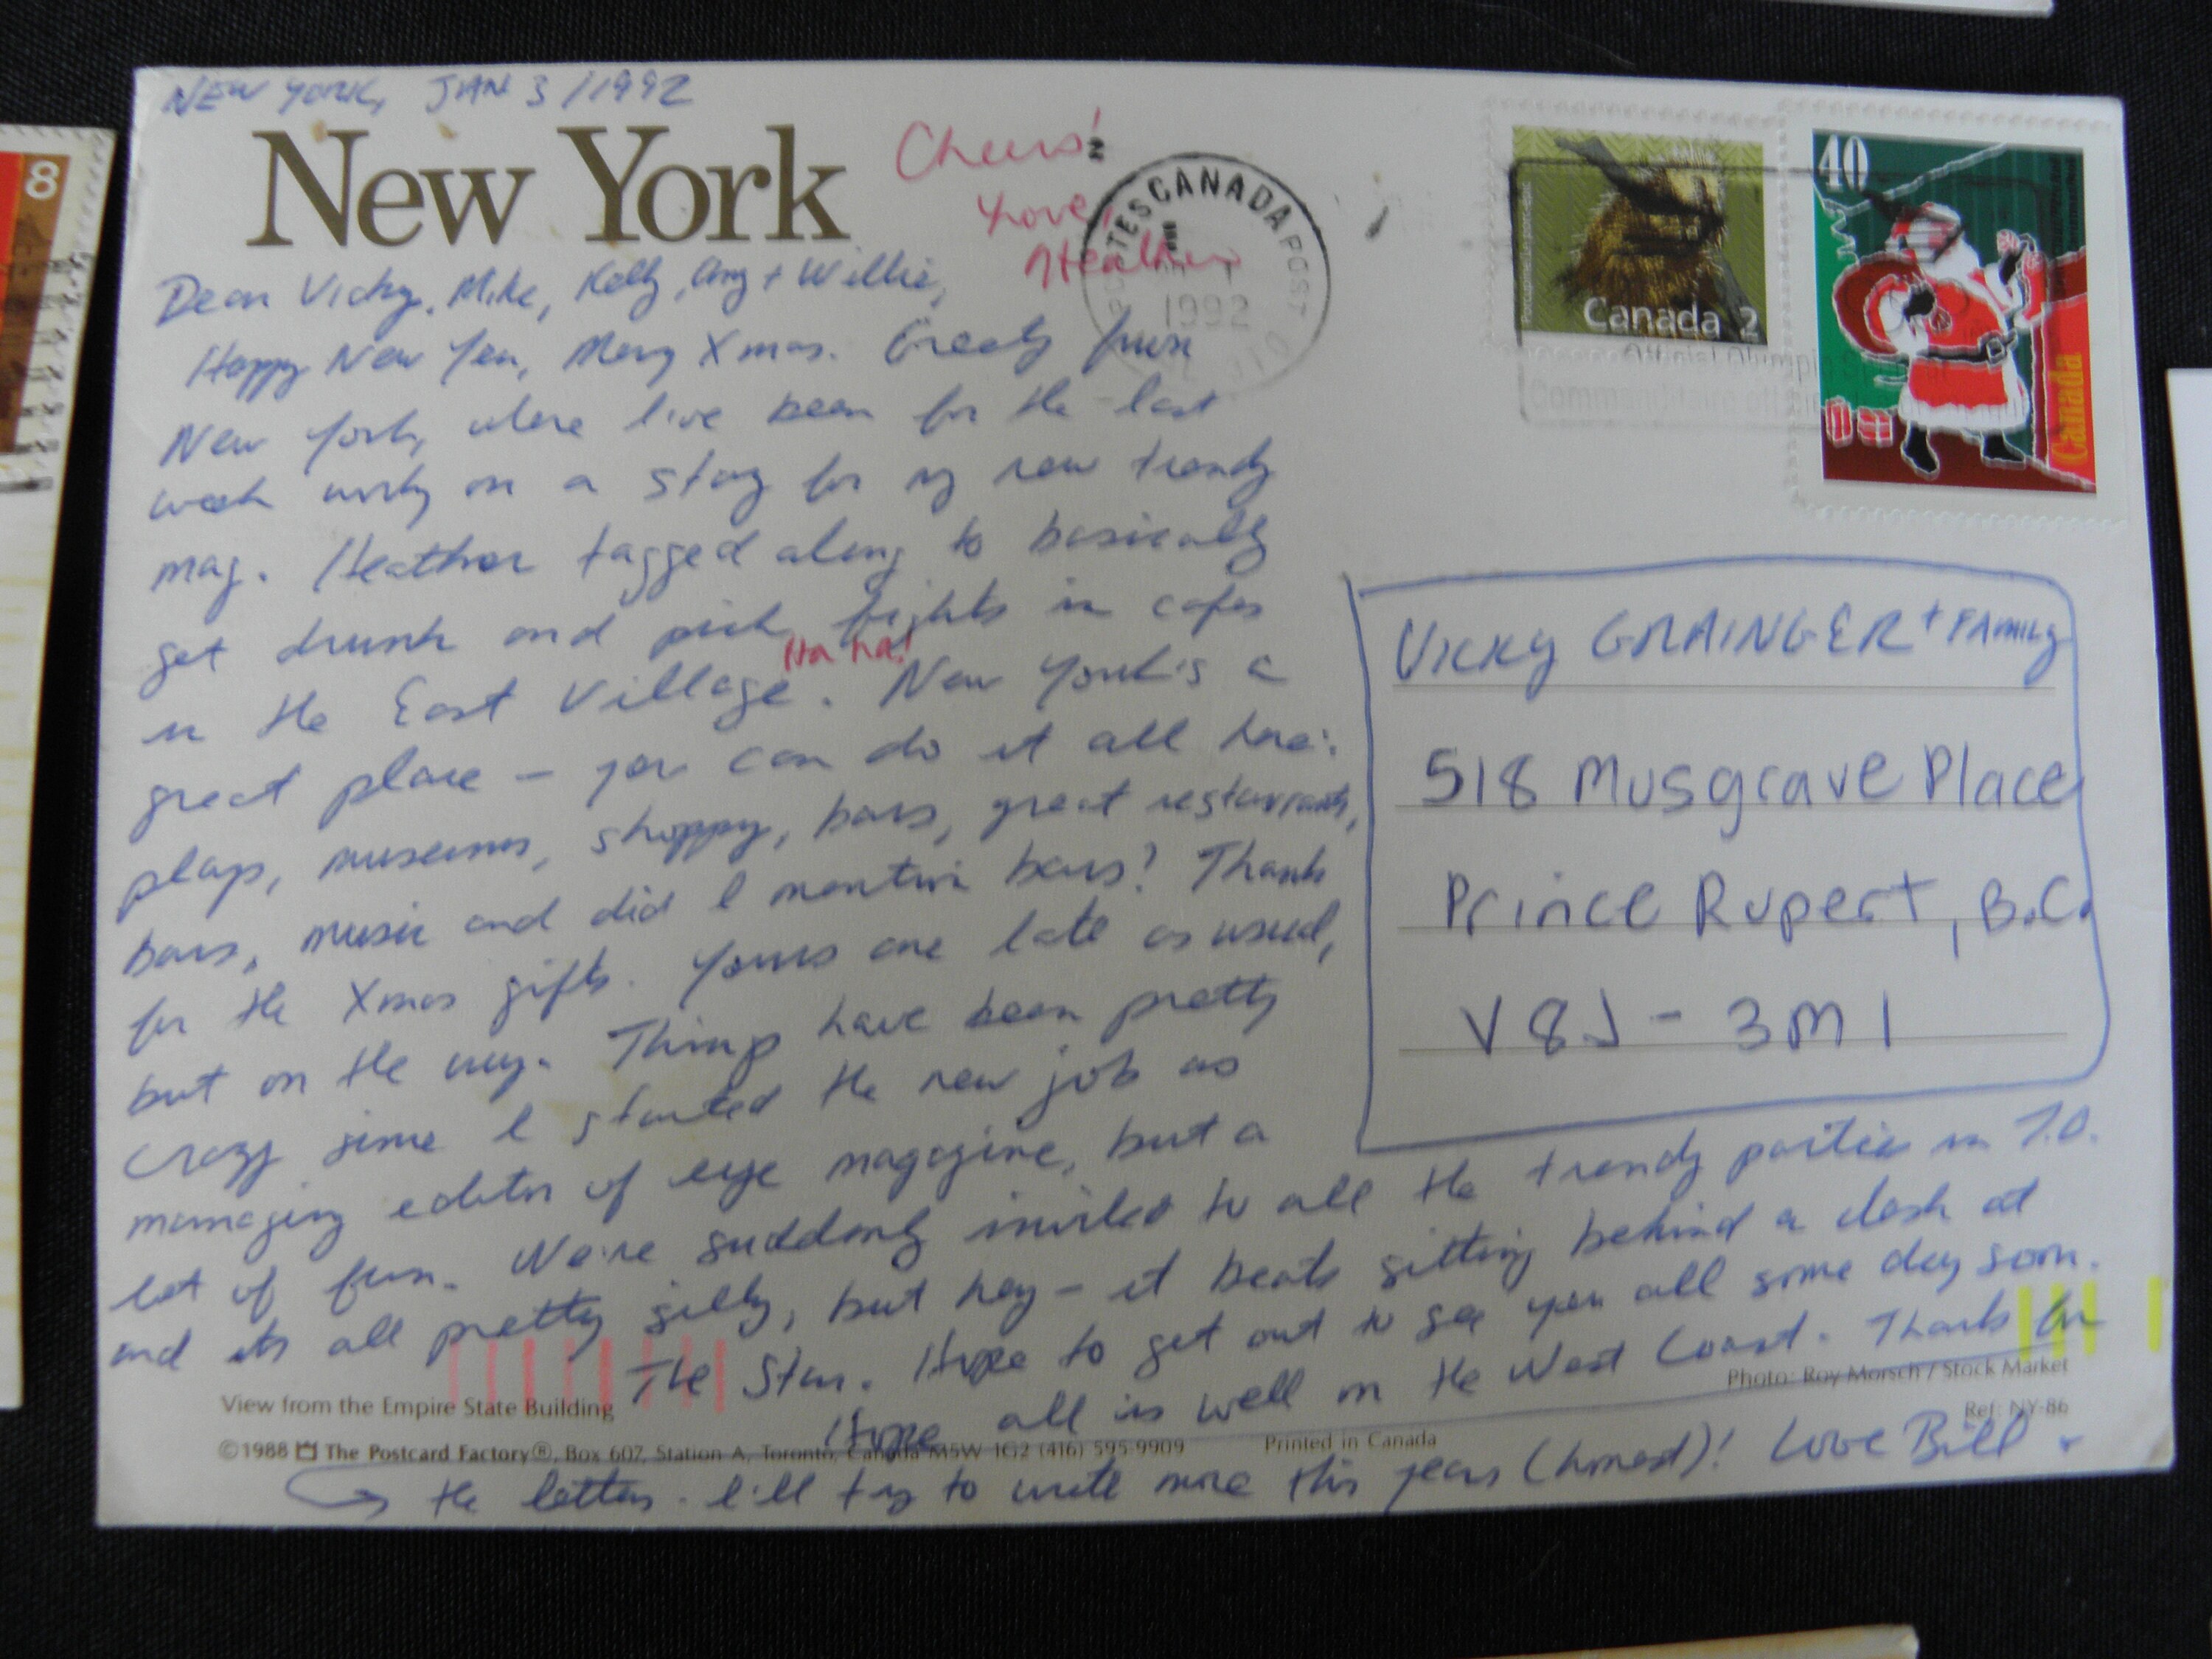 NEW YORK, JAN 3/1992
New York
Cheers!
Love,
Heather
POSTES CANADA POST
1992
Canada 2
40
Canada
Official Olympic
Commanditaire
8
Dear Vicky, Mike, Kelly, Amy + Willie,
Happy New Year, Merry Xmas. Greetings from
New York, where I've been for the last
week working on a story for my new trendy
mag. Heather tagged along to basically
get drunk and pick fights in cafes
Ha ha!
in the East Village. New York's a
great place — you can do it all here:
plays, museums, shopping, bars, great restaurants,
bars, music and did I mention bars? Thanks
for the Xmas gifts. Yours are late as usual,
but on the way. Things have been pretty
crazy since I started the new job as
managing editor of eye magazine, but a
lot of fun. We're suddenly invited to all the trendy parties in T.O.
and it's all pretty silly, but hey — it beats sitting behind a desk at
The Star. Hope to get out to see you all some day soon.
Hope all is well on the West Coast. Thanks for
the letters. I'll try to write more this year (honest)! Love Bill
VICKY GRAINGER + FAMILY
518 Musgrave Place
Prince Rupert, B.C.
V8J - 3M1
View from the Empire State Building
Photo: Roy Morsch / Stock Market
Ref: NY-86
©1988 The Postcard Factory®, Box 607, Station A, Toronto, Canada M5W 1G2 (416) 595-9909
Printed in Canada